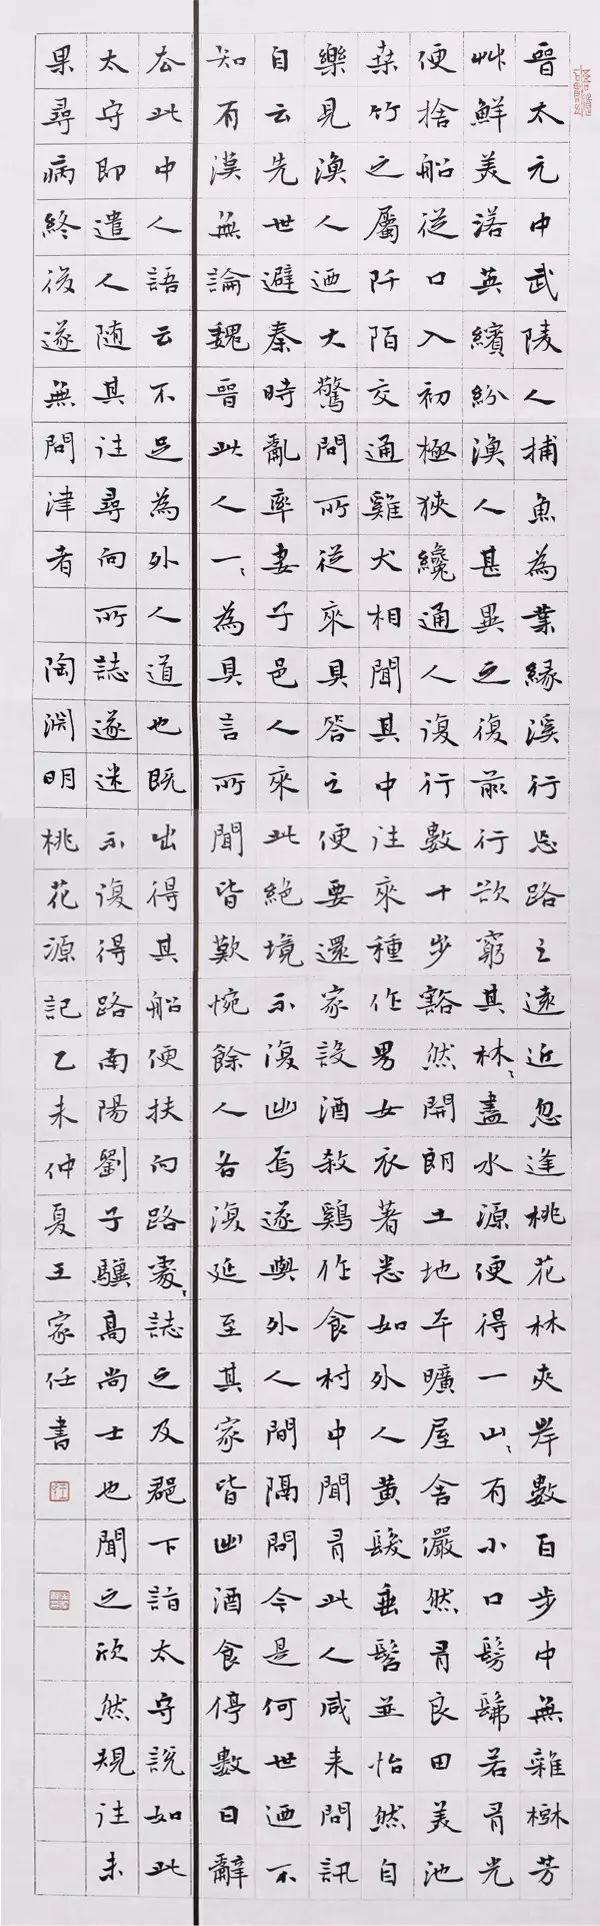 晉太元中武陵人捕魚為業緣溪行忘路之遠近忽逢桃花林夾岸數百步中無雜樹芳
艸鮮美落英繽紛漁人甚異之復前行欲窮其林〻盡水源便得一山〻有小口髣髴若有光
便捨船從口入初極狹纔通人復行數十步豁然開朗土地平曠屋舍儼然有良田美池
桑竹之屬阡陌交通雞犬相聞其中往來種作男女衣著悉如外人黃髮垂髫並怡然自
樂見漁人迺大驚問所從來具答之便要還家設酒殺鷄作食村中聞有此人咸來問訊
自云先世避秦時亂率妻子邑人來此絕境不復出焉遂與外人間隔問今是何世迺不
知有漢無論魏晉此人一〻為具言所聞皆歎惋餘人各復延至其家皆出酒食停數日辭
去此中人語云不足為外人道也既出得其船便扶向路處〻誌之及郡下詣太守說如此
太守即遣人隨其往尋向所誌遂迷不復得路南陽劉子驥高尚士也聞之欣然規往未
果尋病終後遂無問津者 陶淵明桃花源記乙未仲夏王家任書